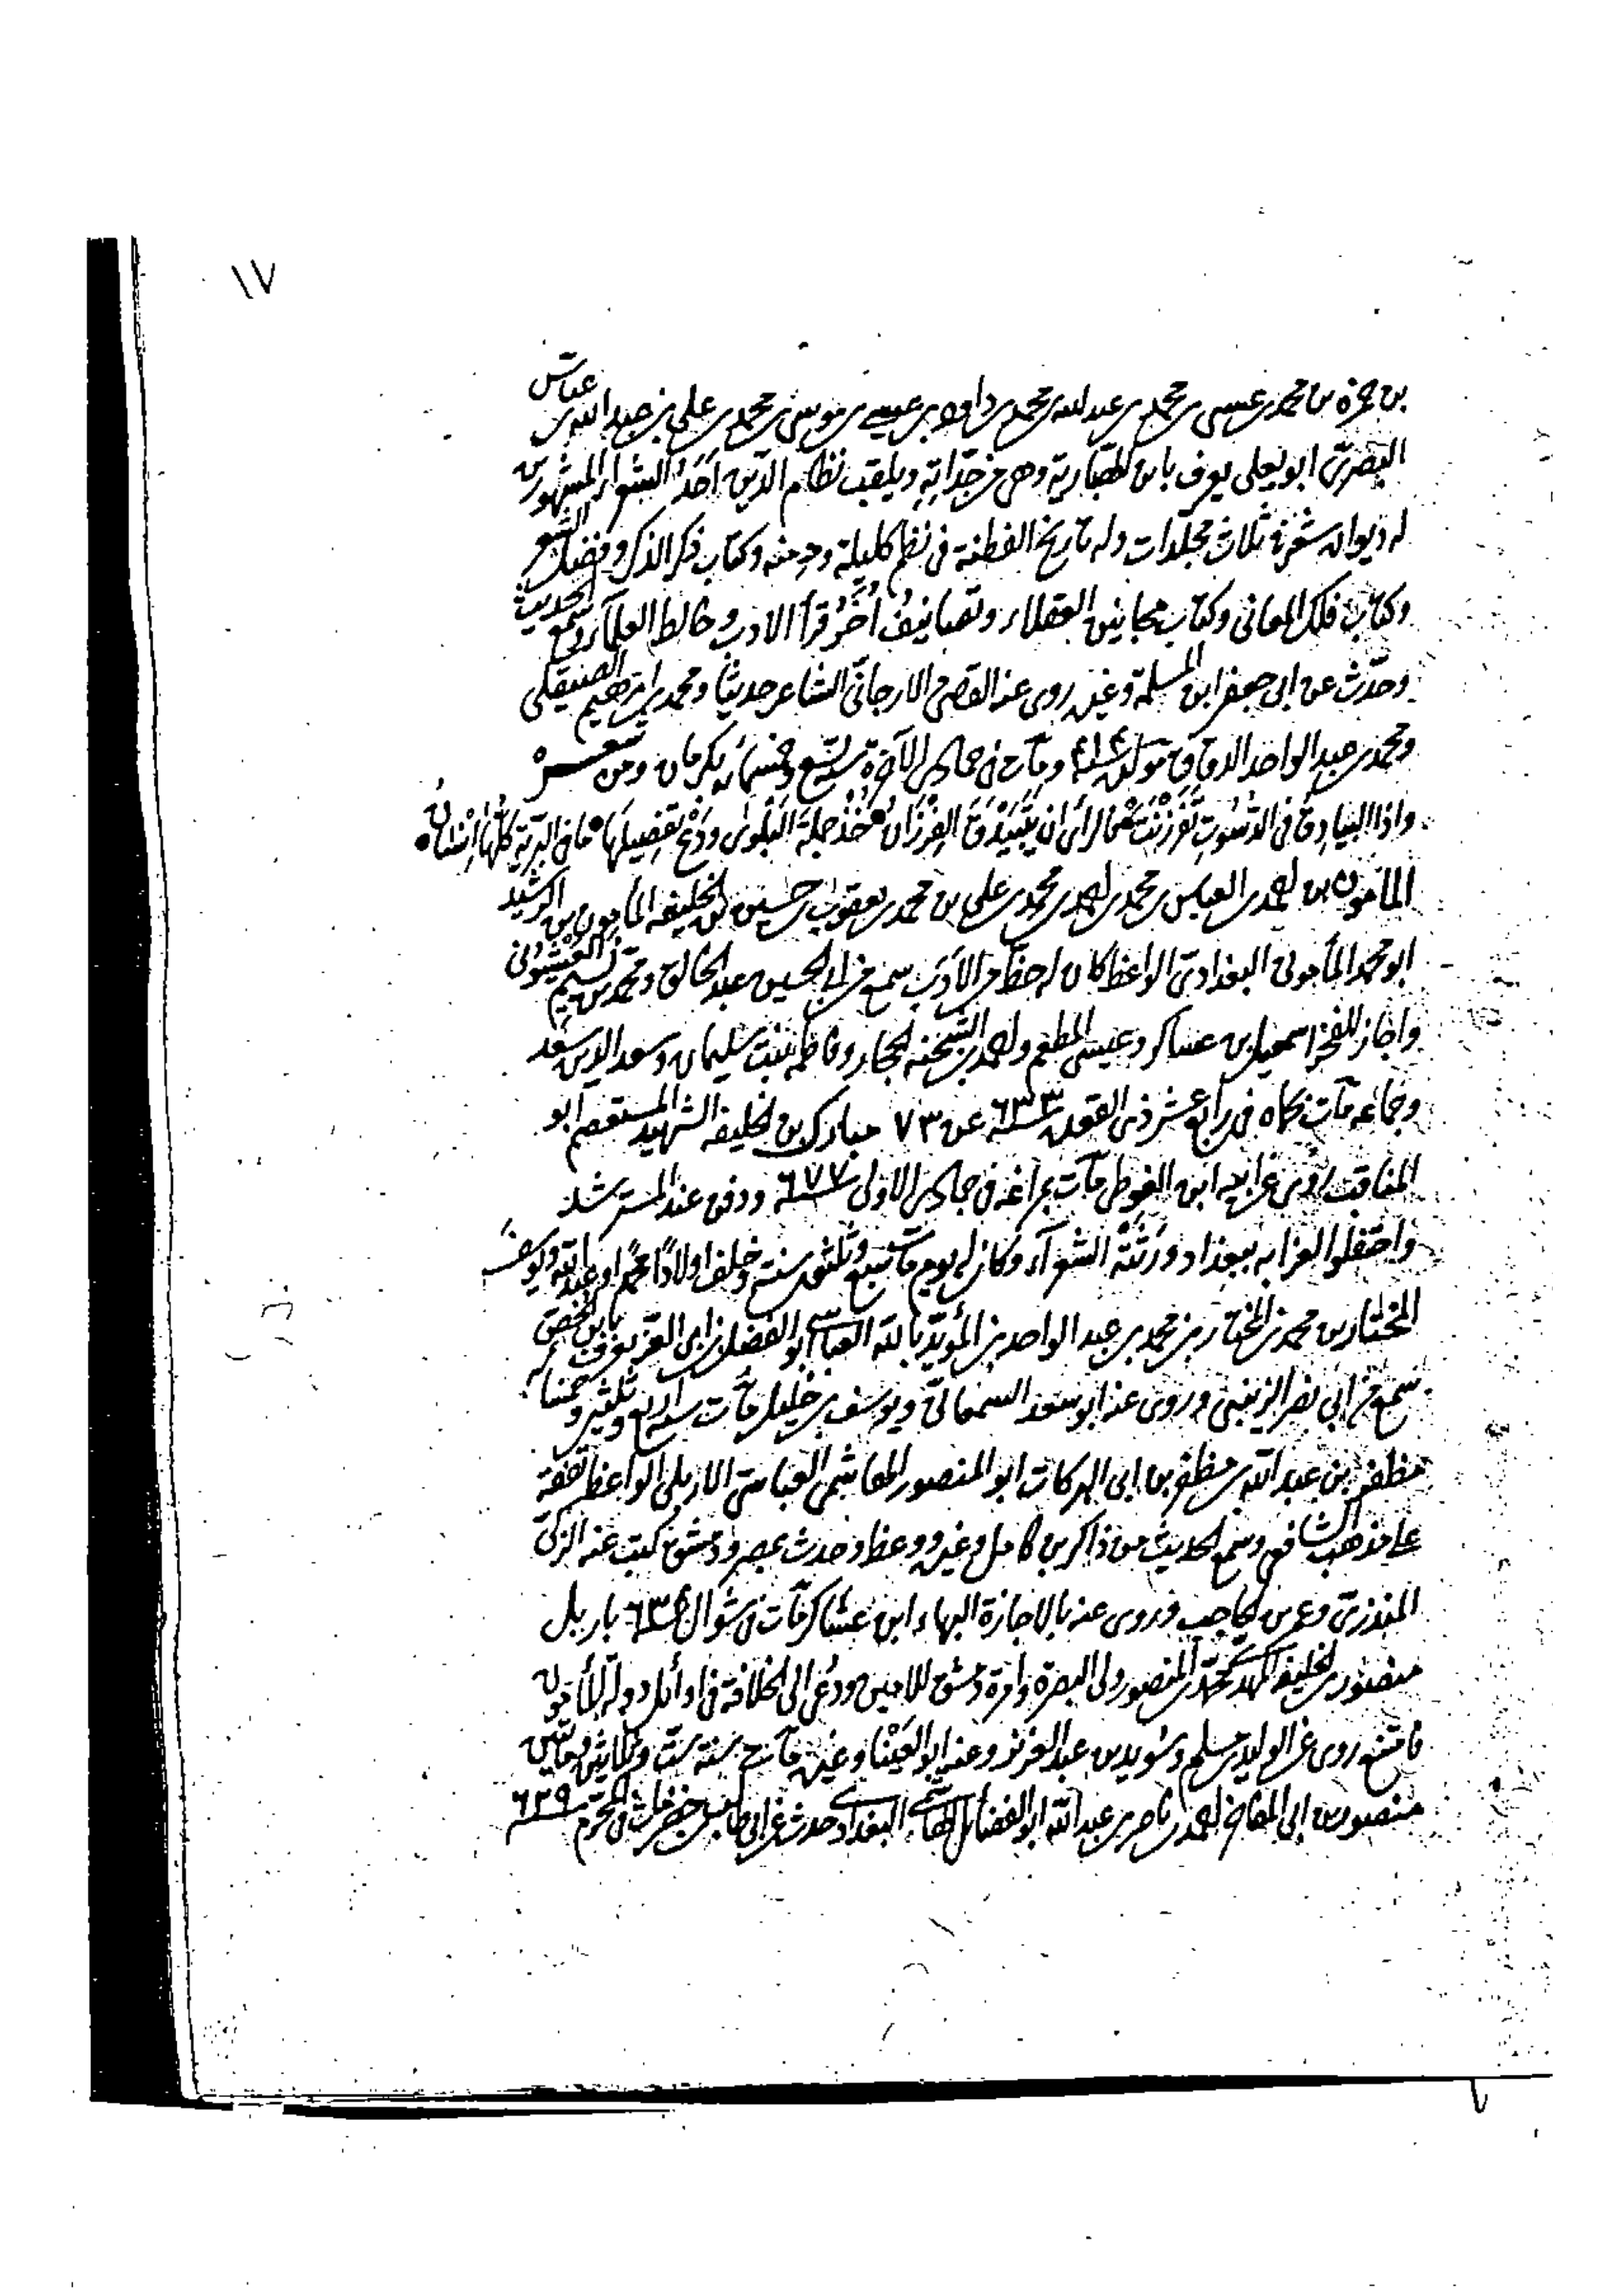 ١٧
بن حمزة بن محمد بن عيسى بن محمد بن عبد الله بن محمد بن داود بن عيسى بن موسى بن محمد بن علي بن عبد الله بن عباس
البصرىّ ابو يعلى يعرف بابن الهبّارية وهى من جدّاته ويلقب نظام الدّين احَدُ الشعراء المشهورين
له ديوان شعره ثلاث مجلّدات وله نتايج الفطنة فى نظم كليلة ودمنه وكتاب ذكر الذكر وفضل الشعر
وكتاب فلك المعانى وكتاب مجانين العقلاء وتصانيفُ اُخَرُ قرأ الادب وخالط العلمآء وسمع الحديث
وحدّث عن ابى جعفر ابن المسلمة وغيره روى عنه القاضى الارجانىّ الشاعر حديثا ومحمد بن ابرهيم الصيقلى
ومحمد بن عبد الواحد الدقاق مولده ومات فى جمادى الآخرة سنة تسع وخمسمائه بكرمان ومن شعره
واذا البياذق فى الدّسُوتِ تَفَرْزَنَت فالرأى ان يَتَبَيْذَقَ الفِرْزَانُ خُذ جملَةَ البَلْوى وَدَعْ تفصِيلَهَا ما فى البَرّيةِ كلّها اِنسَانُ
المأمون بن احمد بن العباس بن محمد بن احمد بن محمد بن علي بن محمد بن يعقوب بن حسين بن الخليفه المأمون بن الرشيد
ابو محمد المأمونى البغدادىّ الواعظ كان له حظّ من الأدَب سمع من ابى الحسين عبد الخالق ومحمد بن نسيم العَيْشُونى
واجاز للفخر اسمعيل بن عساكر وعيسى المطعم واحمد بن الشحنه الحجار وفاطمه بنت سليمان وسعد الدين سعد
وجماعه مات فجاه فى رابع عشر ذى القعدة سنة ٦٣٣ عن ٧٣ مبارك بن الخليفه الشهيد المستعصم ابو
المناقب روى عن ابيه ابن الفوطى مات بمراغه فى جمادى الاولى سنة ٦٧٧ ودفن عند المسترشد
واحتفلوا لعزائه ببغداد ورَثَتْهُ الشعرآء وكان له يوم مات سبع وثلثون سنة وخلف اولادًا محمدًا وعبد الله ويوسف
المختار بن محمد بن المختار بن محمد بن عبد الواحد بن المؤيّد بالله العباسى ابو الفضل بن ابى العز يعرف بابن الخصّ
سمع من ابى نصر الزينبى وروى عنه ابو سعد السمعانىّ ويوسف بن خليل مات سنة اربع وثلثين وخمسمائه
مظفر بن عبد الله بن مظفر بن ابى البركات ابو المنصور الهاشمى العباسىّ الاربلى الواعظ تفقه
على مذهب الشافعى وسمع الحديث من ذاكر بن كامل وغيره ووعظ وحدث بمصر ودمشق كتب عنه الزكىّ
المنذرىّ وعمر بن الحاجب وروى عنه بالاجازة البهاء ابن عساكر مات فى شوال باربل
منصور بن الخليفه المهدى محمد بن المنصور ولى البصرة وامرة دمشق للامين ودُعى الى الخلافة فى اوائل دولة المأمون
فامتنع روى عن الوليد بن مسلم وسُويد بن عبد العزيز وعنه ابو العَيْنا وغيره مات سنة ستّ وثلاثين ومائتين
منصور بن ابى المعالى احمد بن ناصر بن عبد الله ابو الفضائل الهاشمى البغدادى حدث عن ابى طالب بن خضير مات فى المحرّم سنة ٦٣٩